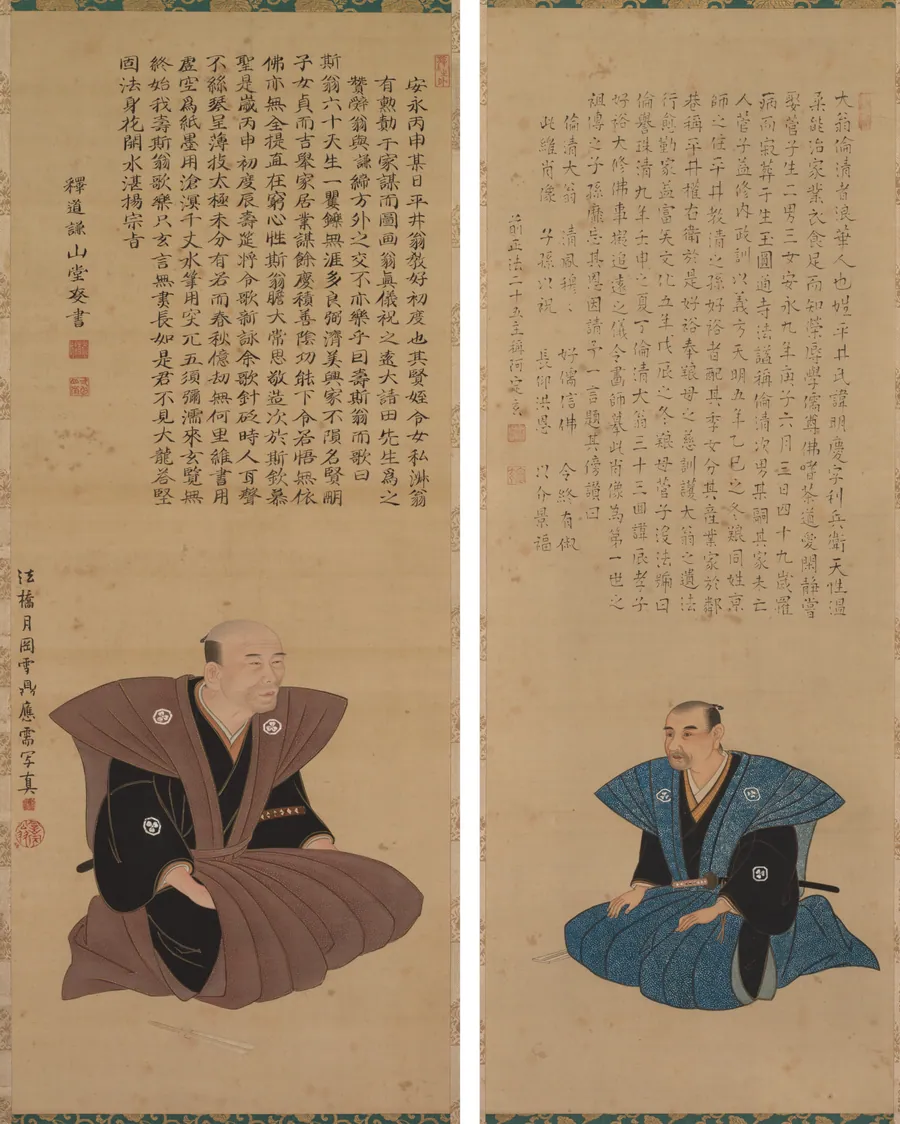 安永丙申某日平井翁敎好初度也其賢姪令女私淑翁
有勲勤于家謀而圖画翁眞儀祝之遠大請田先生爲之
贊辭翁與謙締方外之交不亦樂乎曰壽斯翁而歌曰
斯翁六十天生一矍鑠無涯多良弼濟美興家不隕名賢嗣
子女貞而吉擧家居業謀餘慶積善陰功能下令君悟無依
佛亦無全提直在窮心性斯翁膽大常思敬造次於斯欽慕
聖是歲丙申初度辰壽筵將令歌新詠余歌針砭時人耳聲
不絲琴呈薄技太極未分有若而春秋億劫無何里維書用
虚空爲紙墨用滄溟千丈水筆用突兀五須彌濡來玄覽無
終始我壽斯翁歌樂只玄言無實長如是君不見大龍答堅
固法身花開水湛揚宗旨
釋道謙山堂書
法橋月岡雪鼎應需写真
大翁倫清者浪華人也姓平井氏諱明慶字利兵衛天性温
柔能治家業衣食足而知榮辱學儒尊佛嗜茶道愛閑静嘗
娶菅子生二男三女安永九年庚子六月三日四十九歲罹
病而寂葬于生玉圓道寺法謚稱倫清次男某嗣其家未亡
人菅子益修内政訓以義方天明五年乙巳之冬孃同姓京
師之住平井敎清之孫好裕者配其季女分其産業家於鄰
巷稱平井權右衛於是好裕奉孃母之慈訓護大翁之遺法
行愈勤家益富矣文化五年戊辰之冬孃母菅子没法號曰
倫譽珠清九年壬申之夏丁倫清大翁三十三回諱辰孝子
好裕大修佛事擬追遠之儀令畫師摹此肖像為第一世之
祖傳之子孫靡忘其恩因請予一言題其傍讃曰
倫清大翁 清風穪丶 好儒信佛 令終有俶
此維肖像 子孫以祝 長仰洪恩 以介景福
前正法二十五主穪阿